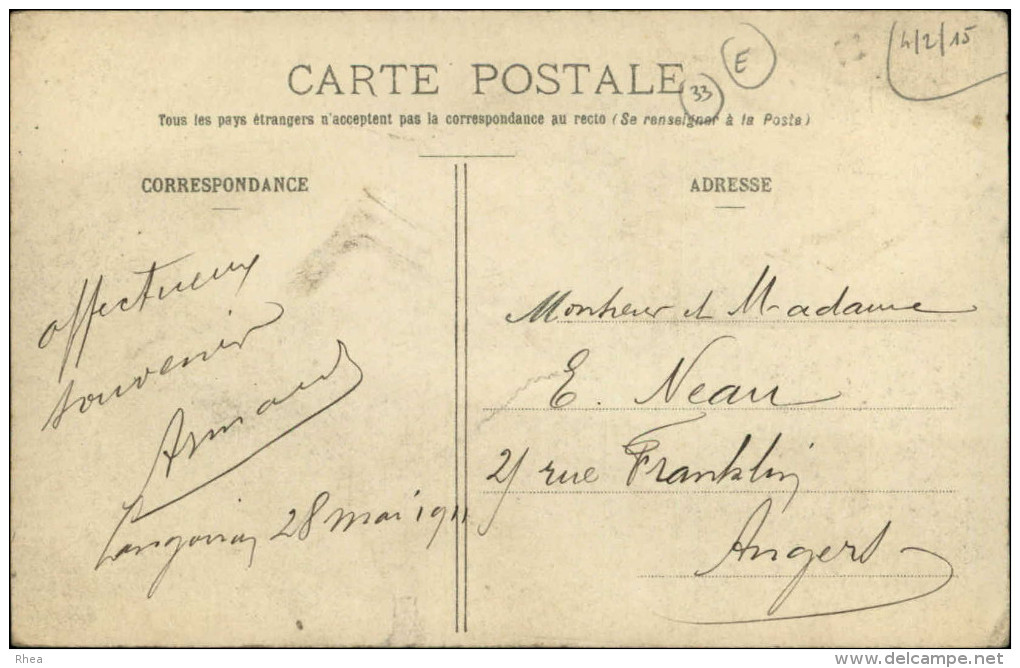 4/2/15
E
CARTE POSTALE
33
Tous les pays étrangers n'acceptent pas la correspondance au recto (Se renseigner à la Poste)
CORRESPONDANCE
affectueux
souvenir
Armand
Langoiran 28 mai 1911
ADRESSE
Monsieur et Madame
E. Neau
rue Franklin
Angers
Rhea
www.delcampe.net